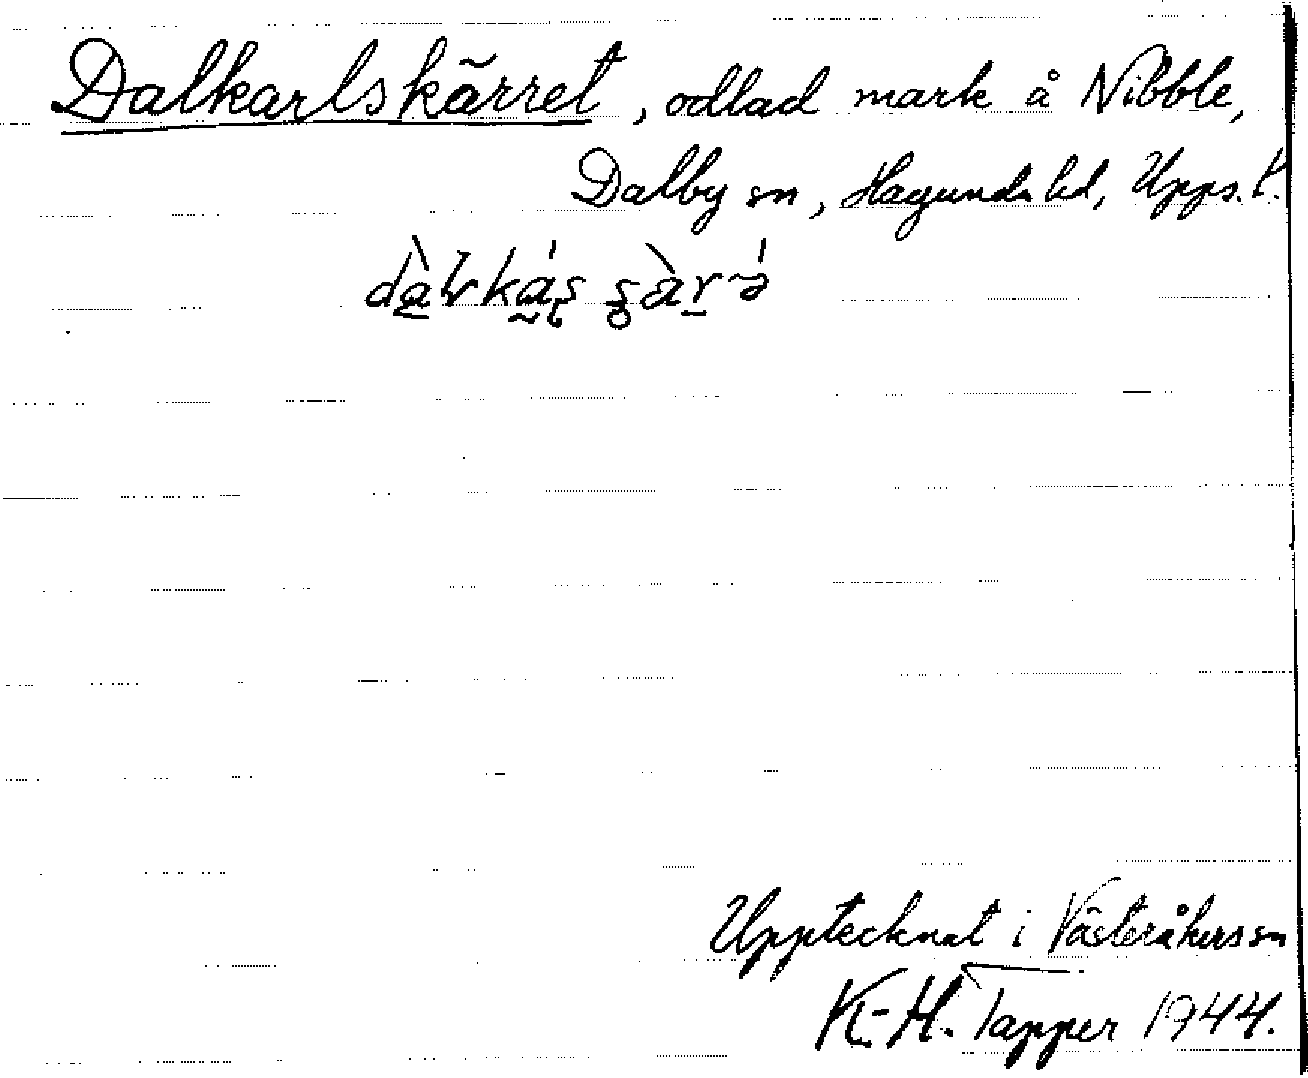 Dalkarlskärret, odlad mark å Nibble,
Dalby sn, Hagunda hd, Upps. l.
Upptecknat i Västeråkers sn
K.-H. Tapper 1944.